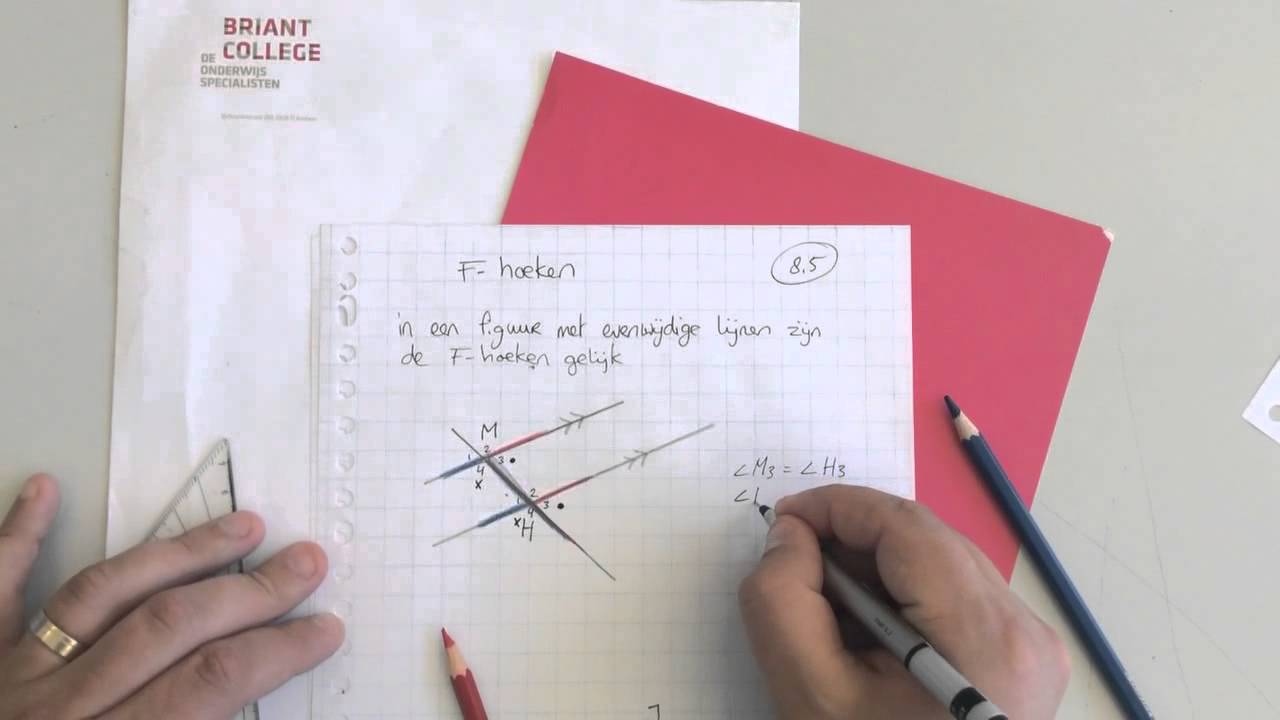 BRIANT
DE COLLEGE
ONDERWIJS
SPECIALISTEN
F-hoeken
8.5
in een figuur met evenwijdige lijnen zijn
de F-hoeken gelijk
M
1 2 3
4
x
1 2 3
4
x H
∠M3 = ∠H3
∠